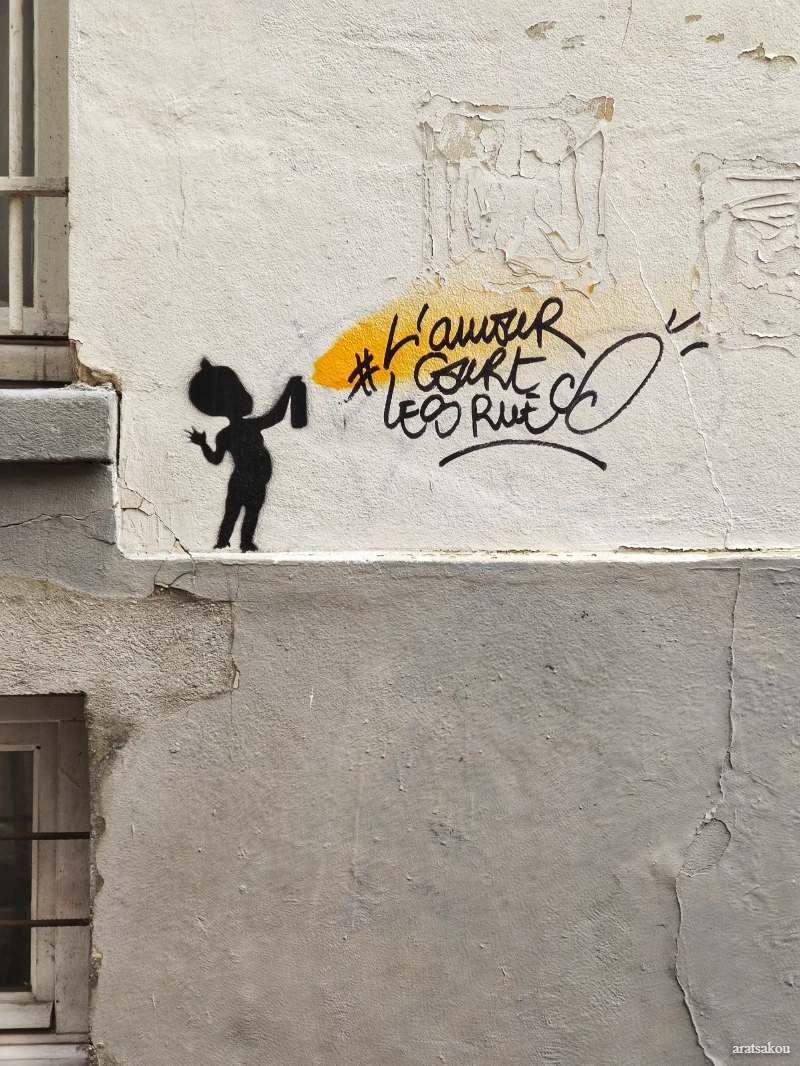 #L'amour
court
les rues
aratsakou